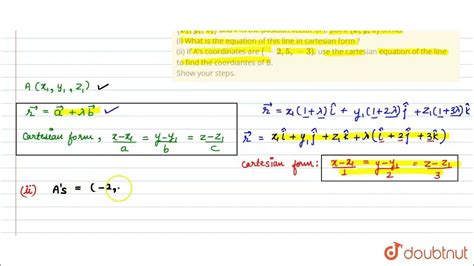 (i) What is the equation of this line in cartesian form ?
(ii) If A's coordinates are (−2, 5, −3), use the cartesian equation of the line
to find the coordiantes of B.
Show your steps.
A (x₁, y₁, z₁) ✓
r⃗ = a⃗ + λb⃗ ✓
Cartesian form, (x-x₁)/a = (y-y₁)/b = (z-z₁)/c
r⃗ = x₁(1+λ)î + y₁(1+2λ)ĵ + z₁(1+3λ)k̂
r⃗ = x₁î + y₁ĵ + z₁k̂ + λ(î + 2ĵ + 3k̂)
Cartesian form: (x-x₁)/1 = (y-y₁)/2 = (z-z₁)/3
(ii) A's = (-2,
doubtnut